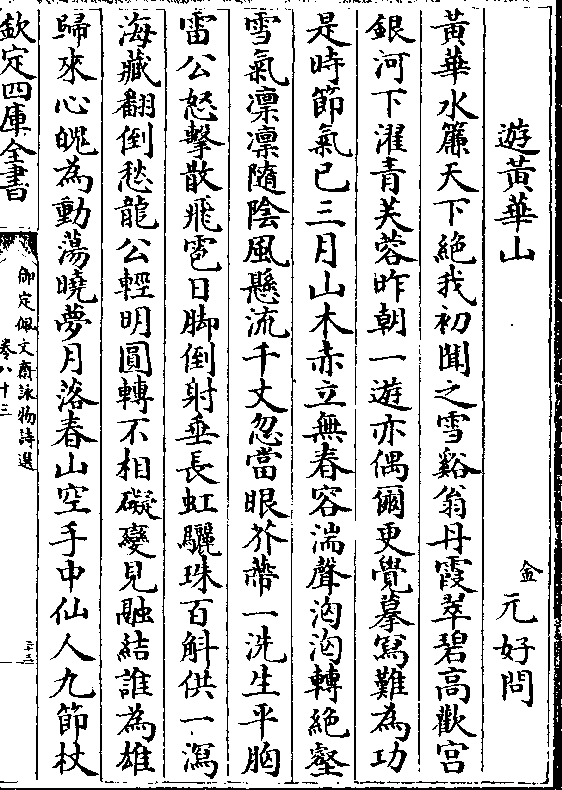 遊黄華山
金 元好問
黄華水簾天下絶我初聞之雪谿翁丹霞翠碧髙歡宫
銀河下濯青芙蓉昨朝一遊亦偶爾更覺摹寫難為功
是時節氣已三月山木赤立無春容湍聲洶洶轉絶壑
雪氣凛凛隨陰風懸流千丈忽當眼芥蔕一洗生平胸
雷公怒擊散飛雹日脚倒射垂長虹驪珠百斛供一瀉
海藏翻倒愁龍公輕明圓轉不相礙變見融結誰為雄
歸來心魄為動蕩曉夢月落春山空手中仙人九節杖
欽定四庫全書
御定佩文齋詠物詩選
卷八十三